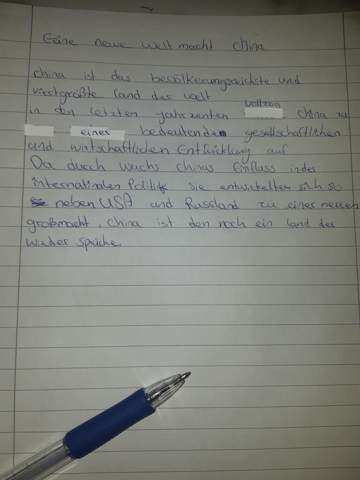 Eine neue welt macht China
China ist das bevölkerungsreichste und
viertgrößte land das welt
in den letzten jahrzenten vollzog China zu
einer bedeutende gesellschaftlichen
und wirtschaftlichen Entwicklung auf
Da durch wuchs chinas Einfluss in der
internationalen Politik sie entwickelten sich so
neben USA und Russland zu einer neuen
großmacht, China ist den noch ein land der
wieder sprüche